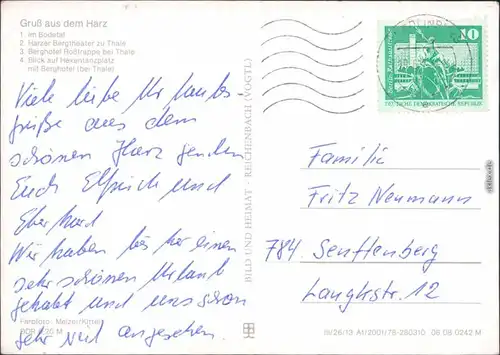 Gruß aus dem Harz
1. Im Bodetal
2. Harzer Bergtheater zu Thale
3. Berghotel Roßtrappe bei Thale
4. Blick auf Hexentanzplatz
mit Berghotel (bei Thale)
Viele liebe Urlaubs
grüße aus dem
schönen Harz senden
Euch Elfriede und
Eberhard
Wir haben bis her einen
sehr schönen Urlaub
gehabt und uns schon
sehr viel angesehen.
Farbfoto: Melzer/Kittel
BILD UND HEIMAT · REICHENBACH (VOGTL)
10
DEUTSCHE DEMOKRATISCHE REPUBLIK
Familie
Fritz Neumann
784 Senftenberg
Langkstr. 12
III/26/13 A1/2001/78-280310 06 08 0242 M